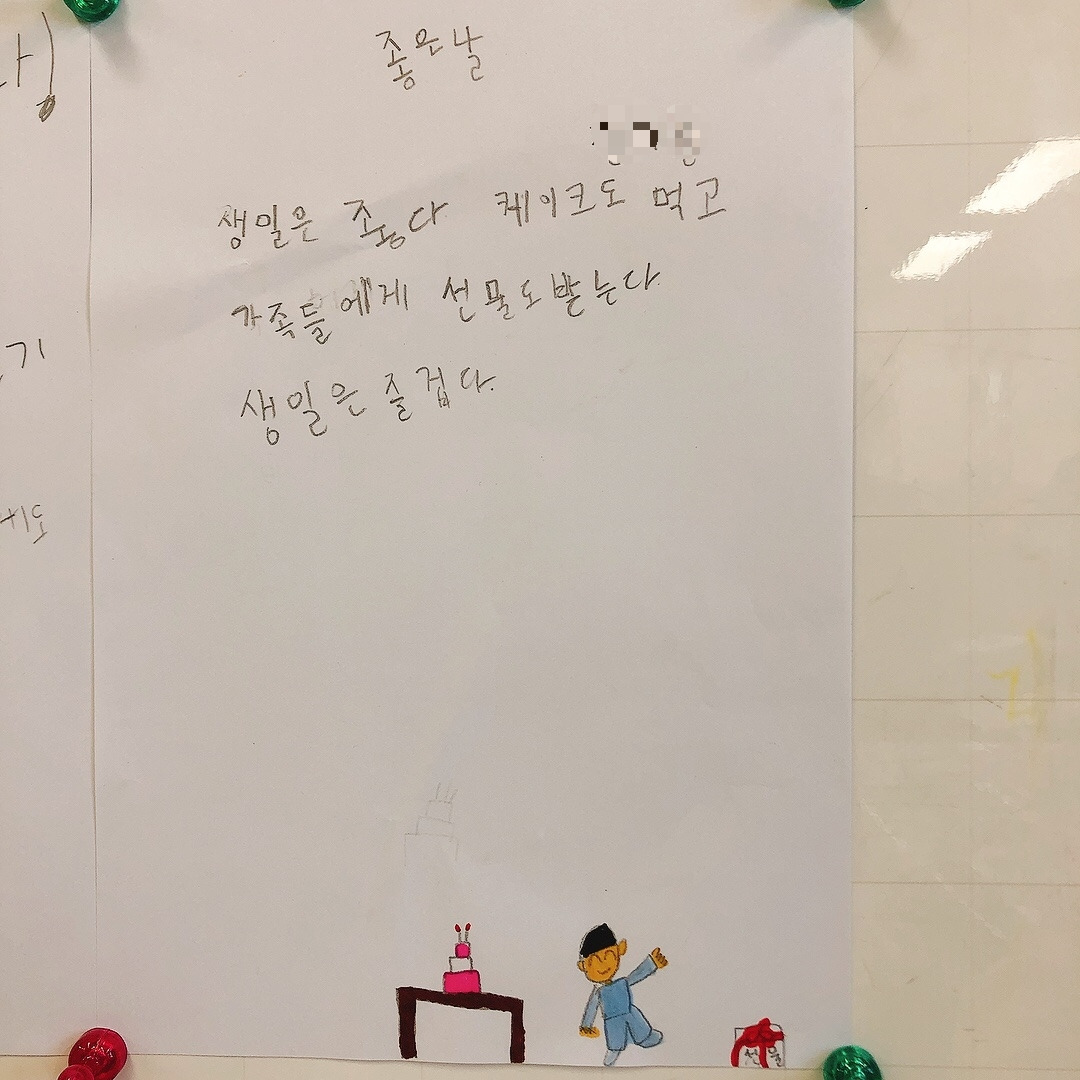 좋은날
생일은 좋다 케이크도 먹고
가족들에게 선물도받는다.
생일은 즐겁다.
선물